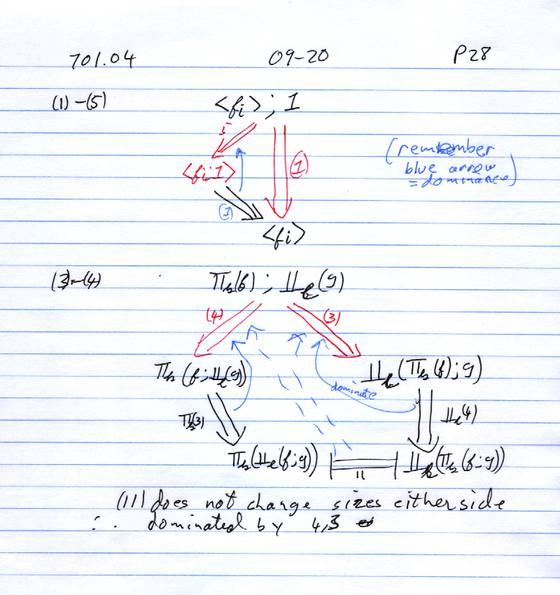 701.04 09-20 P28
(1)-(5) <fi> ; 1
5
<fi1> (1)
(remember
blue arrow
= dominance)
(1)
<fi>
(3)-(4) π_k(f) ; ⨿_k(g)
(4) (3)
⨿_k(π_k(f);g)
dominate
⨿(4)
11
(11) does not change sizes either side
∴ dominated by 4,3